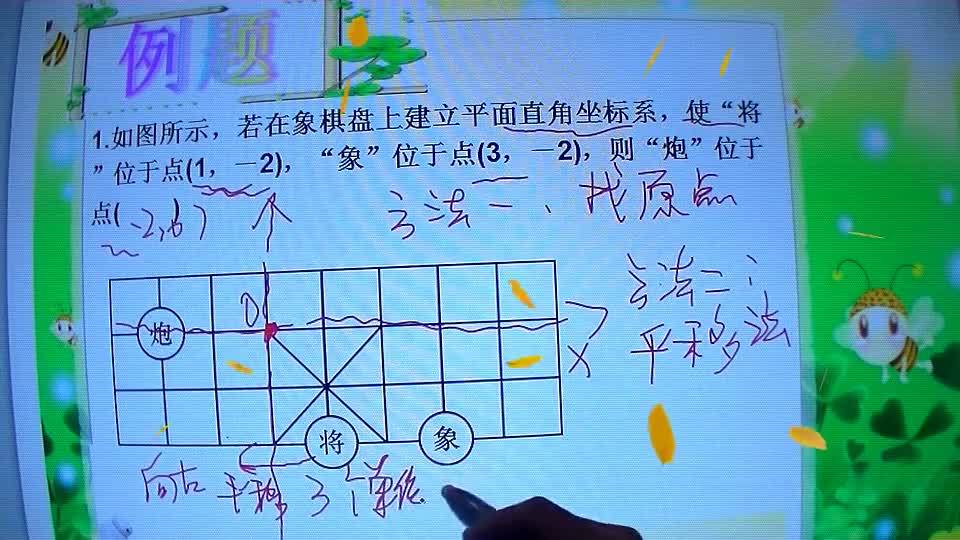 例题
1.如图所示，若在象棋盘上建立平面直角坐标系，使“将
”位于点(1，－2)，“象”位于点(3，－2)，则“炮”位于
点( -2,0 )
方法一、找原点
方法二：
平移法
O
炮
X
将
象
平移 3个单位